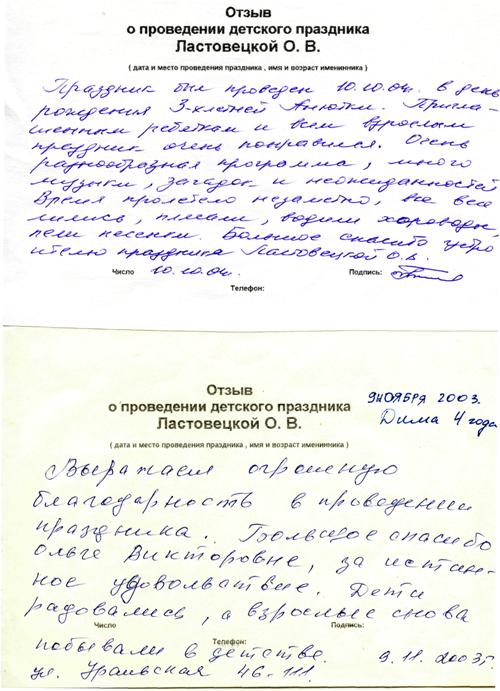 Отзыв
о проведении детского праздника
Ластовецкой О. В.
( дата и место проведения праздника , имя и возраст именинника )
Праздник был проведен 10.10.04г. в день
рождения 3-хлетней Анютки. Пригла-
шенным ребяткам и всем взрослым
праздник очень понравился. Очень
разнообразная программа, много
музыки, загадок и неожиданностей
Время пролетело незаметно, все весе
лились, плясали, водили хороводы,
пели песенки. Большое спасибо устро
ителю праздника Ластовецкой О.В.
Число 10.10.04г. Подпись:
Телефон:
Отзыв
о проведении детского праздника
Ластовецкой О. В.
9 НОЯБРЯ 2003г.
Дима 4 года
( дата и место проведения праздника , имя и возраст именинника )
Выражаем огромную
благодарность в проведении
праздника. Большое спасибо
Ольге Викторовне, за истин-
ное удовольствие. Дети
радовались, а взрослые снова
Число Подпись:
побывали в детстве. 9.11.2003г.
Телефон:
ул. Уральская 46-111.